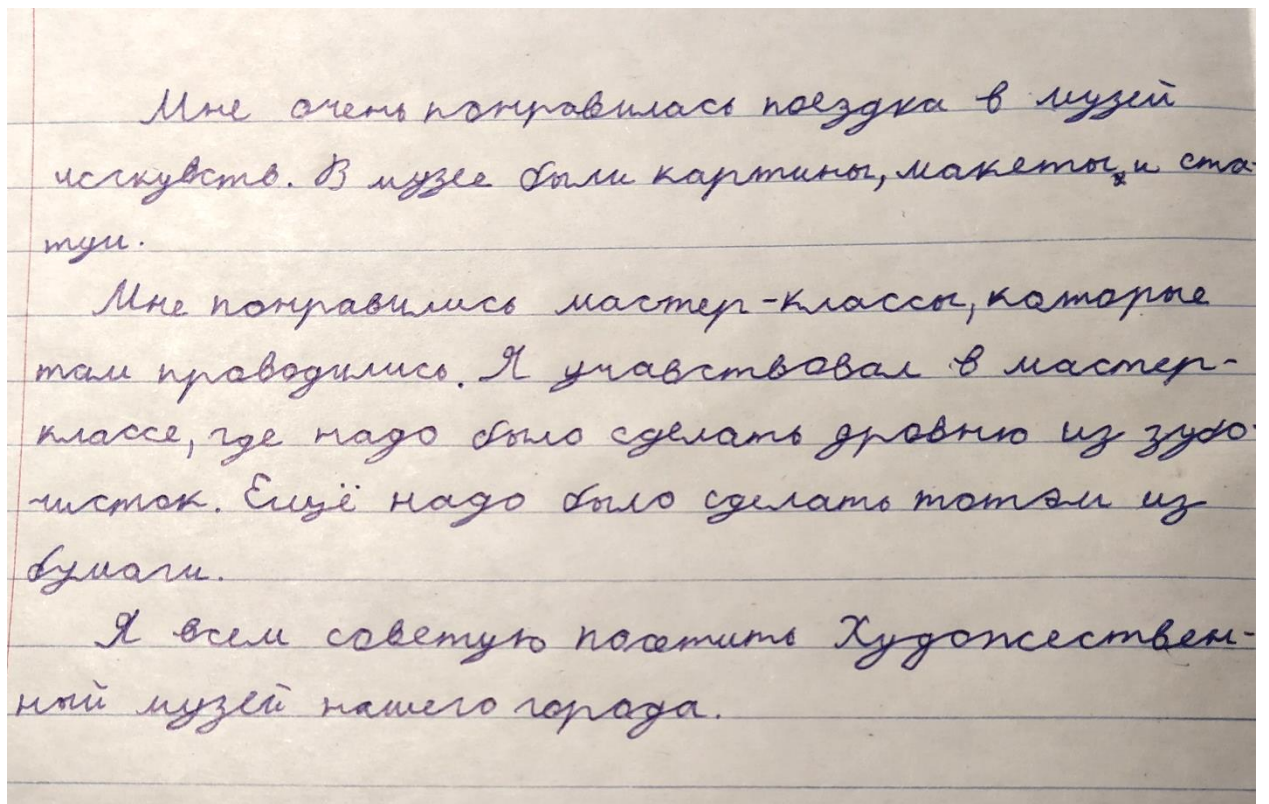 Мне очень понравилась поездка в музей
исскувств. В музее были картины, макеты и ста-
туи.
Мне понравились мастер-классы, которые
там проводились. Я учавствовал в мастер-
классе, где надо было сделать дровню из зубо-
чисток. Ещё надо было сделать тотэм из
бумаги.
Я всем советую посетить Художествен-
ный музей нашего города.